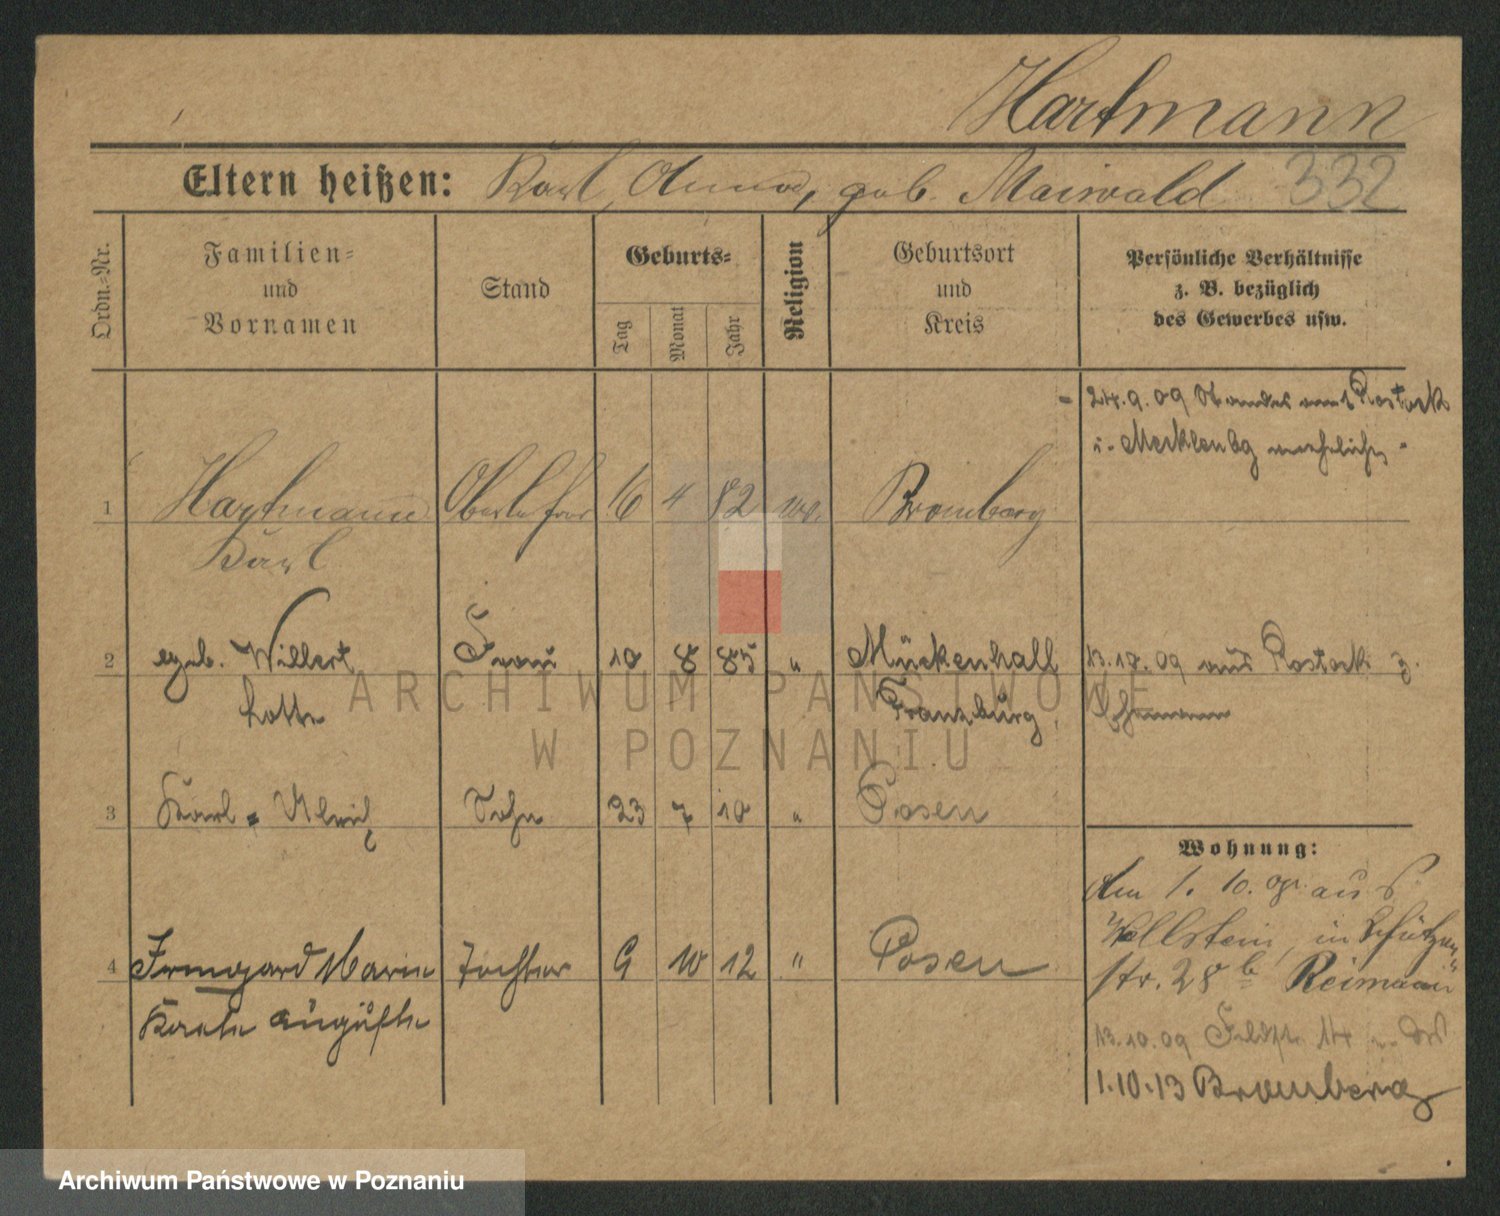 Hartmann
Eltern heißen: Karl, Anna, geb. Maiwald 332
Ordn.=Nr.
Familien=
und
Vornamen
Stand
Geburts=
Tag
Monat
Jahr
Religion
Geburtsort
und
Kreis
Persönliche Verhältnisse
z. B. bezüglich
des Gewerbes usw.
24.9.09 Standesamt Rostock
i. Mecklenbg verehelicht
1 Hartmann Oberlehrer 16 4 82 Bromberg
Karl
2 geb. Willert Frau 10 8 85 " Mückenhall 13.10.09 aus Rostock z.
Lotte Franzburg Ehemann
3 Karl = Ulrich Sohn 23 7 10 " Posen
Wohnung:
am 1. 10. 09 aus
Wollstein, in Schützen
4 Irmgard Marie Tochter 9 10 12 " Posen str. 28 b Reimann
Karla Auguste
13.10.09 Feldstr. 14
1.10.13 Bromberg
ARCHIWUM PAŃSTWOWE
W POZNANIU
Archiwum Państwowe w Poznaniu